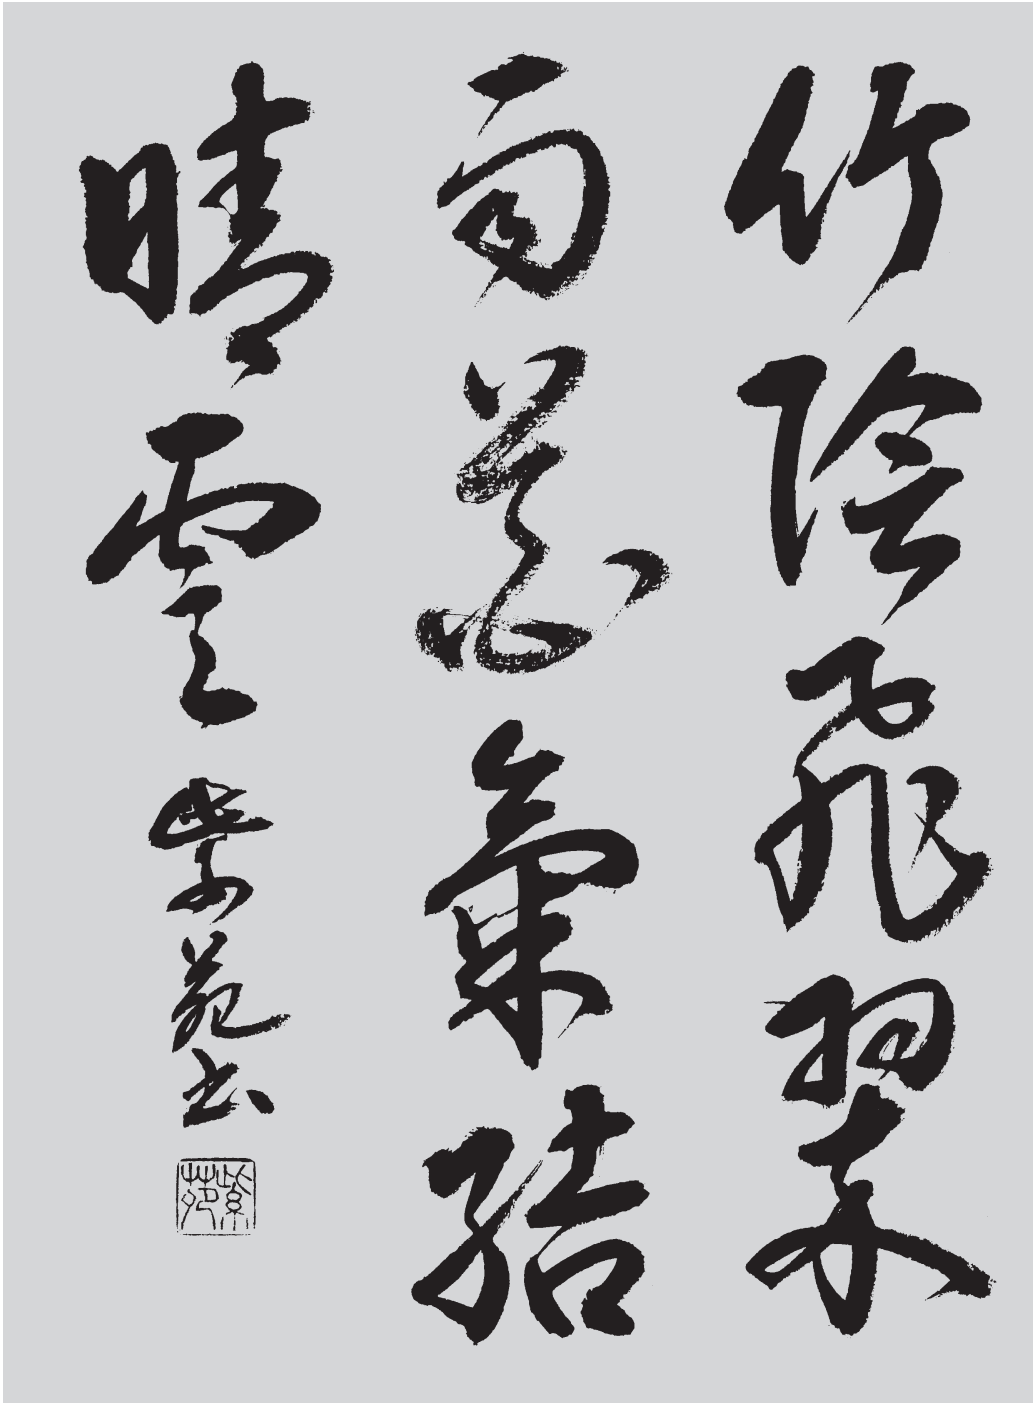 竹陰飛翠
雨蕙氣結
晴雲 紫苑書
紫苑